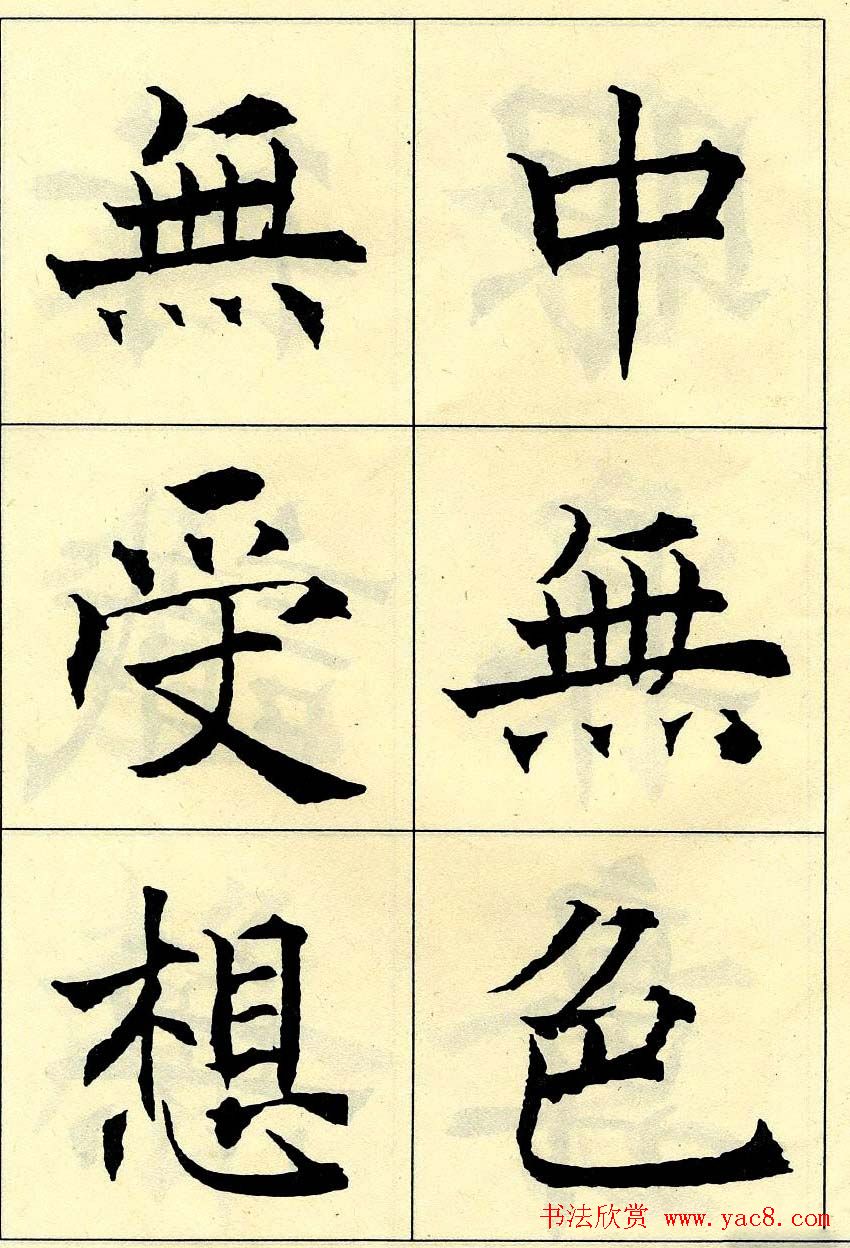 中無色
無受想
书法欣赏 www.yac8.com